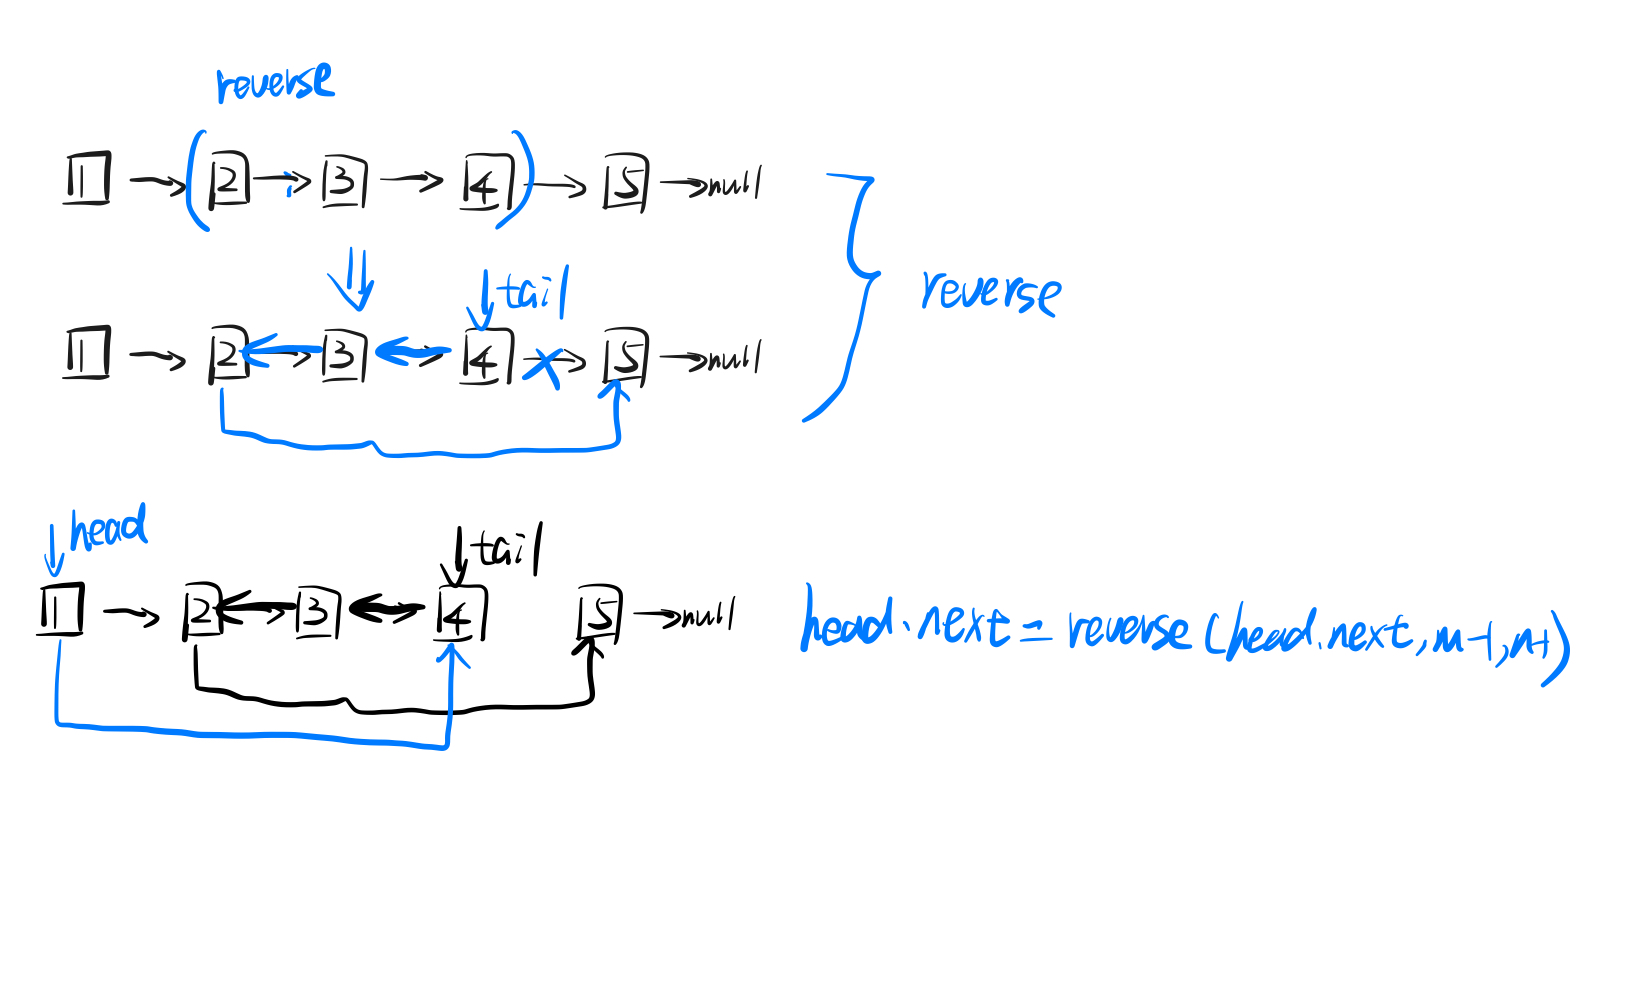 reverse
1 2 3 4 5 null
tail
1 2 3 4 5 null
reverse
head
tail
1 2 3 4 5 null
head.next = reverse(head.next, m-1, n-1)